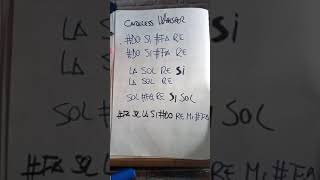 CARELESS WHISPER
#DO SI #FA RE
#DO SI #FA RE
LA SOL RE SI
LA SOL RE
SOL #FA RE SI SOL
#FA SOL LA SI #DO RE MI #FA